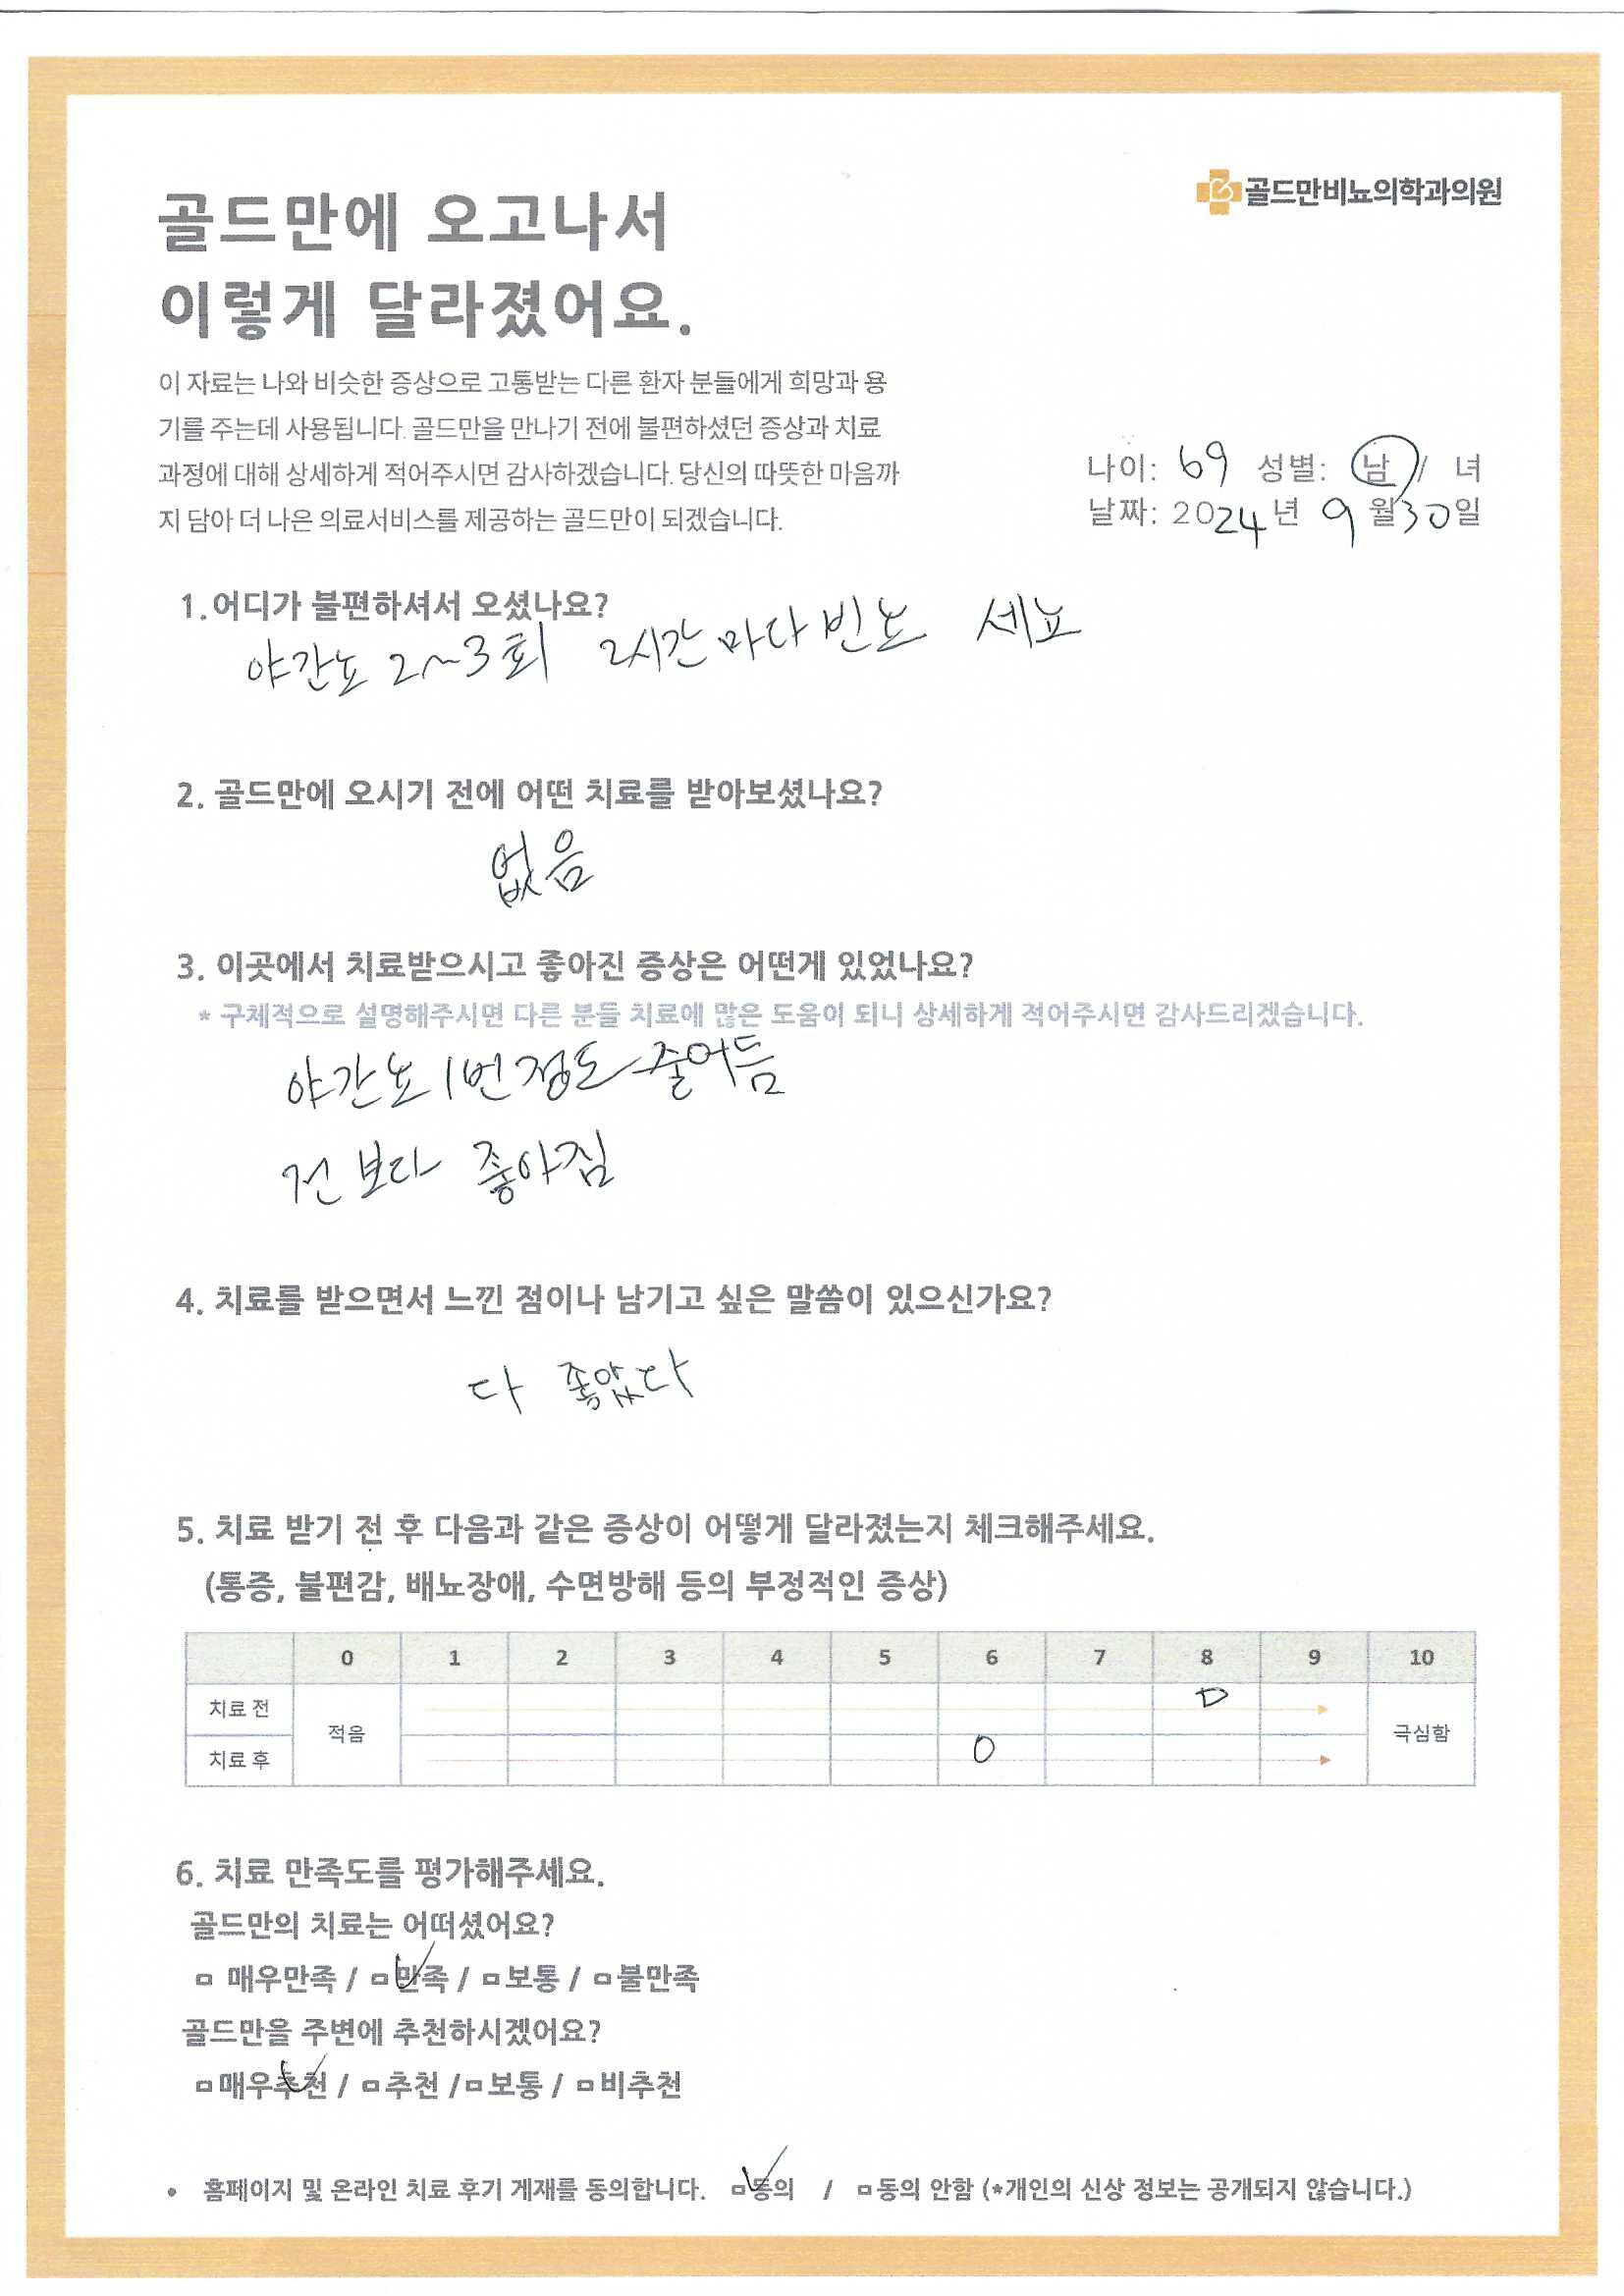 골드만비뇨의학과의원
골드만에 오고나서
이렇게 달라졌어요.
이 자료는 나와 비슷한 증상으로 고통받는 다른 환자 분들에게 희망과 용
기를 주는데 사용됩니다. 골드만을 만나기 전에 불편하셨던 증상과 치료
과정에 대해 상세하게 적어주시면 감사하겠습니다. 당신의 따뜻한 마음까
지 담아 더 나은 의료서비스를 제공하는 골드만이 되겠습니다.
나이: 69 성별: 남 / 녀
날짜: 2024년 9월 30일
1.어디가 불편하셔서 오셨나요?
야간뇨 2~3회 2시간마다 빈뇨 세뇨
2. 골드만에 오시기 전에 어떤 치료를 받아보셨나요?
없음
3. 이곳에서 치료받으시고 좋아진 증상은 어떤게 있었나요?
* 구체적으로 설명해주시면 다른 분들 치료에 많은 도움이 되니 상세하게 적어주시면 감사드리겠습니다.
야간뇨 1번정도 줄어듬
전보다 좋아짐
4. 치료를 받으면서 느낀 점이나 남기고 싶은 말씀이 있으신가요?
다 좋았다
5. 치료 받기 전 후 다음과 같은 증상이 어떻게 달라졌는지 체크해주세요.
(통증, 불편감, 배뇨장애, 수면방해 등의 부정적인 증상)
0 1 2 3 4 5 6 7 8 9 10
치료 전
적음
극심함
치료 후
6. 치료 만족도를 평가해주세요.
골드만의 치료는 어떠셨어요?
□ 매우만족 / □ 만족 / □ 보통 / □ 불만족
골드만을 주변에 추천하시겠어요?
□ 매우추천 / □ 추천 / □ 보통 / □ 비추천
• 홈페이지 및 온라인 치료 후기 게재를 동의합니다. □ 동의 / □ 동의 안함 (*개인의 신상 정보는 공개되지 않습니다.)